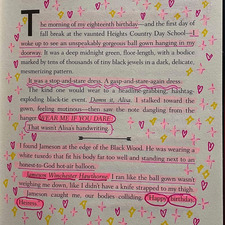 The morning of my eighteenth birthday—and the first day of
fall break at the vaunted Heights Country Day School—I
woke up to see an unspeakably gorgeous ball gown hanging in my
doorway. It was a deep midnight green, floor-length, with a bodice
marked by tens of thousands of tiny black jewels in a dark, delicate,
mesmerizing pattern.
It was a stop-and-stare dress. A gasp-and-stare-again dress.
The kind one would wear to a headline-grabbing, hashtag-
exploding black-tie event. Damn it, Alisa. I stalked toward the
gown, feeling mutinous—then saw the note dangling from the
hanger: WEAR ME IF YOU DARE.
That wasn't Alisa's handwriting.
I found Jameson at the edge of the Black Wood. He was wearing a
white tuxedo that fit his body far too well and standing next to an
honest-to-God hot-air balloon.
Jameson Winchester Hawthorne. I ran like the ball gown wasn't
weighing me down, like I didn't have a knife strapped to my thigh.
Jameson caught me, our bodies colliding. "Happy birthday,
Heiress."